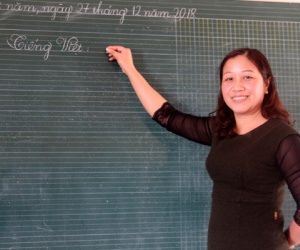 năm, ngày 27 tháng 12 năm 2018
Tiếng Việt: